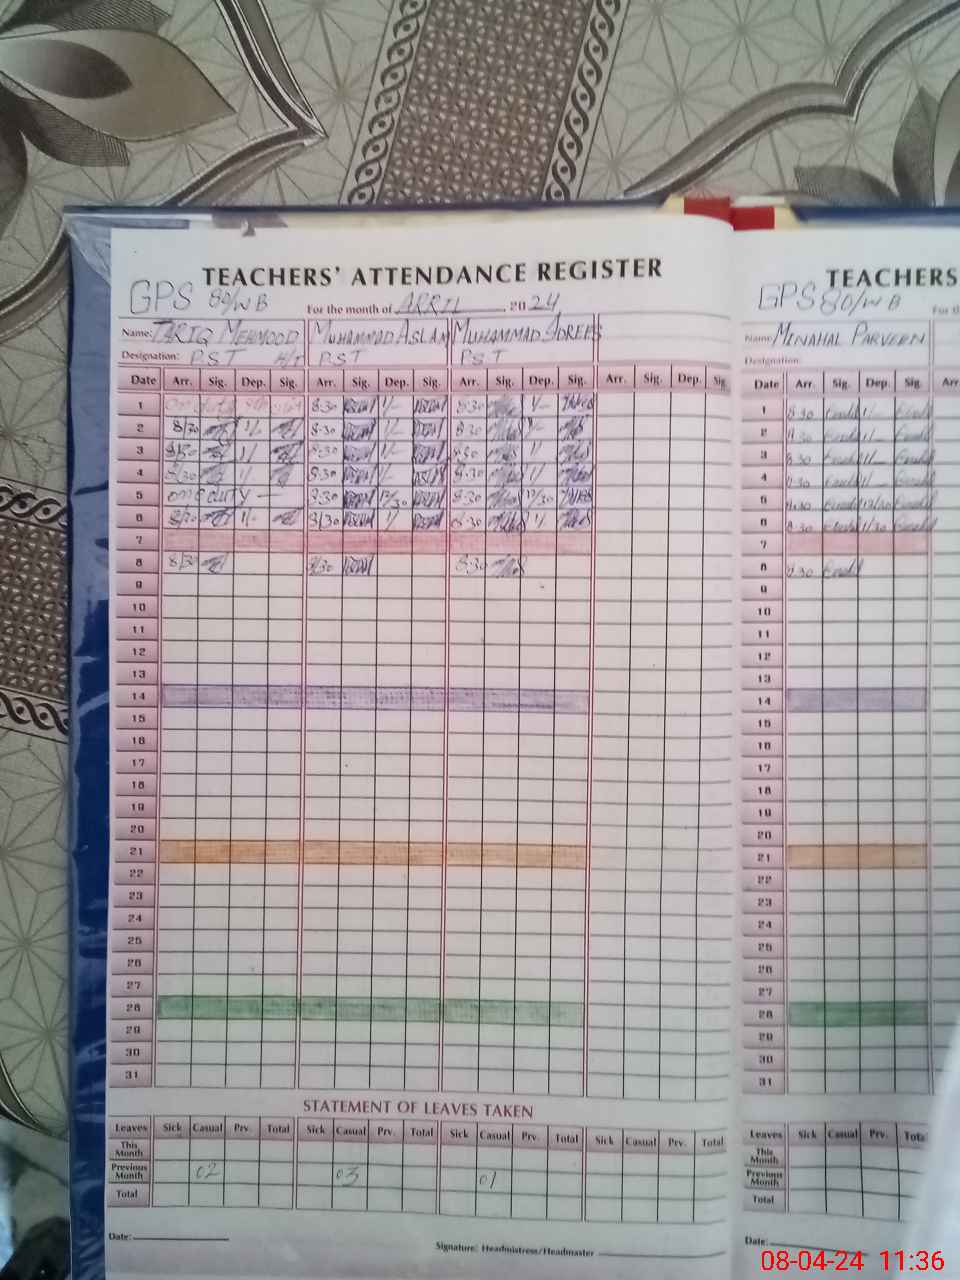 TEACHERS' ATTENDANCE REGISTER
GPS 80/WB For the month of APRIL, 2024
Name: TARIQ MEHMOOD MUHAMMAD ASLAM MUHAMMAD IDREES
Designation: P.S.T H/T P.S.T P.S.T
Date Arr. Sig. Dep. Sig. Arr. Sig. Dep. Sig. Arr. Sig. Dep. Sig. Arr. Sig. Dep. Sig.
1 on duty 8:30 1/- 8:30 1/-
2 8/30 1/- 8:30 1/- 8:30 1/-
3 8/30 1/ 8:30 1/- 8:30 1/
4 8/30 1/- 8:30 1/- 8:30 1/
5 on duty — 8:30 12/30 8:30 12/30
6 8/30 1/- 8/30 1/ 8:30 1/-
7
8 8/30 8/30 8:30
9
10
11
12
13
14
15
16
17
18
19
20
21
22
23
24
25
26
27
28
29
30
31
STATEMENT OF LEAVES TAKEN
Leaves Sick Casual Prv. Total Sick Casual Prv. Total Sick Casual Prv. Total Sick Casual Prv. Total
This Month
Previous Month 02 03 01
Total
Date:
Signature: Headmistress/Headmaster
TEACHERS
GPS 80/WB
Name: MINAHAL PARVEEN
Designation:
Date Arr. Sig. Dep. Sig. Arr.
1 8:30 1/-
2 8:30 1/-
3 8:30 1/-
4 8:30 1/-
5 8:30 12/30
6 8:30 1/30
7
8 8:30
9
10
11
12
13
14
15
16
17
18
19
20
21
22
23
24
25
26
27
28
29
30
31
Leaves Sick Casual Prv.
This Month
Previous Month
Total
Date:
08-04-24 11:36